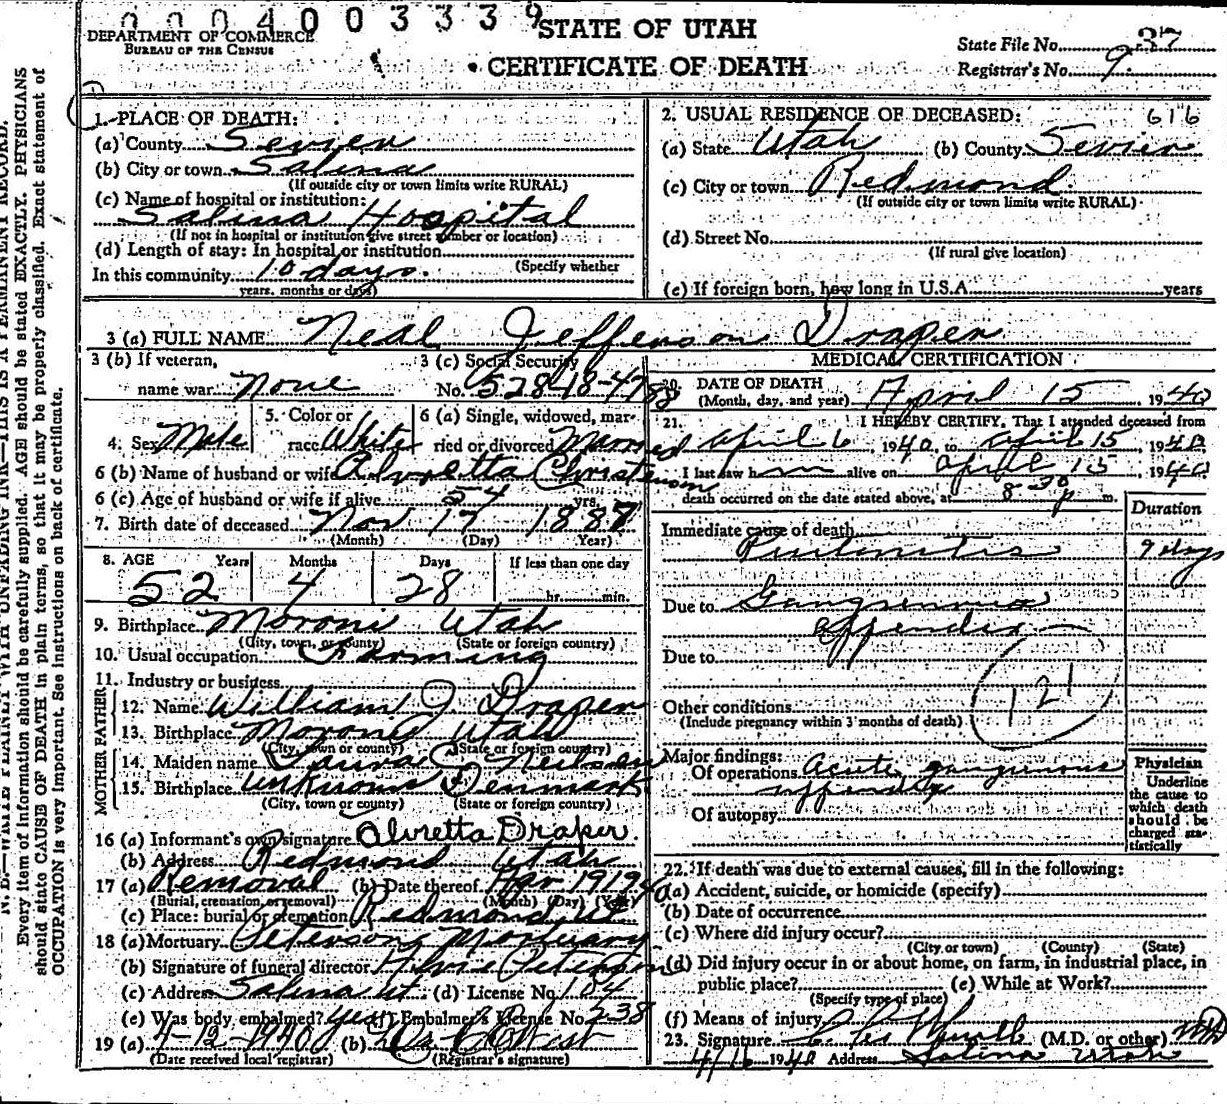 000400 3339
DEPARTMENT OF COMMERCE
BUREAU OF THE CENSUS
STATE OF UTAH
CERTIFICATE OF DEATH
State File No. 37
Registrar's No. 9
N. B.—WRITE PLAINLY WITH UNFADING INK—THIS IS A PERMANENT RECORD.
Every item of information should be carefully supplied. AGE should be stated EXACTLY. PHYSICIANS
should state CAUSE OF DEATH in plain terms, so that it may be properly classified. Exact statement of
OCCUPATION is very important. See instructions on back of certificate.
1. PLACE OF DEATH:
(a) County Sevier
(b) City or town Salina
(If outside city or town limits write RURAL)
(c) Name of hospital or institution:
Salina Hospital
(If not in hospital or institution give street number or location)
(d) Length of stay: In hospital or institution
(Specify whether
In this community 10 days.
years, months or days)
2. USUAL RESIDENCE OF DECEASED: 616
(a) State Utah (b) County Sevier
(c) City or town Redmond
(If outside city or town limits write RURAL)
(d) Street No.
(If rural give location)
(e) If foreign born, how long in U.S.A. years
3 (a) FULL NAME Neal Jefferson Draper
3 (b) If veteran,
name war None
3 (c) Social Security
No. 528-18-4788
4. Sex Male
5. Color or
race White
6 (a) Single, widowed, mar-
ried or divorced Married
6 (b) Name of husband or wife Alvretta Christensen
6 (c) Age of husband or wife if alive 54 yrs.
7. Birth date of deceased Nov 17 1887
(Month) (Day) Year)
8. AGE Years Months Days If less than one day
52 4 28 hr. min.
9. Birthplace Moroni Utah
(City, town, or county) (State or foreign country)
10. Usual occupation Farming
11. Industry or business
FATHER
12. Name William J Draper
13. Birthplace Moroni Utah
(City, town or county) (State or foreign country)
MOTHER
14. Maiden name Laura C Neilsen
15. Birthplace unknown Denmark
(City, town or county) (State or foreign country)
16 (a) Informant's own signature Alvretta Draper.
(b) Address Redmond Utah
17 (a) Removal (b) Date thereof Apr 19 1940
(Burial, cremation, or removal) (Month) (Day) (Year)
(c) Place: burial or cremation Redmond Ut
18 (a) Mortuary Petersons Mortuary
(b) Signature of funeral director Alvie Peterson
(c) Address Salina Ut. (d) License No. 184
(e) Was body embalmed? yes (f) Embalmer's License No. 238
19 (a) 4-12-1940 (b) West
(Date received local registrar) (Registrar's signature)
MEDICAL CERTIFICATION
20. DATE OF DEATH
(Month, day, and year) April 15, 1940
21. I HEREBY CERTIFY, That I attended deceased from
April 6, 1940, to April 15, 1940
I last saw him alive on April 15 1940
death occurred on the date stated above, at 8-30 p m.
Duration
Immediate cause of death
Peritonitis 9 days
Due to Gangrenous
appendix
Due to
121
Other conditions
(Include pregnancy within 3 months of death)
Major findings:
Of operations Acute, gangrenous
appendix
Of autopsy
Physician
Underline
the cause to
which death
should be
charged sta-
tistically
22. If death was due to external causes, fill in the following:
(a) Accident, suicide, or homicide (specify)
(b) Date of occurrence
(c) Where did injury occur?
(City or town) (County) (State)
(d) Did injury occur in or about home, on farm, in industrial place, in
public place? (e) While at Work?
(Specify type of place)
(f) Means of injury
23. Signature (M.D. or other) MD
4/16 1940 Address Salina Utah